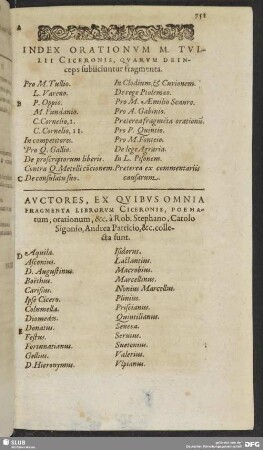 758
A
INDEX ORATIONVM M. TVL-
LII CICERONIS, QVARVM DEIN-
ceps subiiciuntur fragmenta.
Pro M. Tullio.
L. Vareno.
B
P. Oppio.
M. Fundanio.
C. Cornelio, I.
C. Cornelio, II.
In competitores.
Pro Q. Gallio.
De proscriptorum liberis.
Contra Q. Metelli concionem.
C
De consulatu suo.
In Clodium & Curionem.
De rege Ptolemæo.
Pro M. Æmilio Scauro.
Pro A. Gabinio.
Præterea fragmēta orationū.
Pro P. Quintio.
Pro M. Fonteio.
De lege Agraria.
In L. Pisonem.
Præterea ex commentariis
causarum.
AVCTORES, EX QVIBVS OMNIA
FRAGMENTA LIBRORVM CICERONIS, POEMA-
tum, orationum, &c. à Rob. Stephano, Carolo
Sigonio, Andrea Patricio, &c. colle-
cta sunt.
D
Aquila.
Asconius.
D. Augustinus.
Boëthius.
Carisius.
Ipse Cicero.
Columella.
Diomedes.
E
Donatus.
Festus.
Fortunatianus.
Gellius.
D. Hieronymus.
Isidorus.
Lactantius.
Macrobius.
Marcellinus.
Nonius Marcellus.
Plinius.
Priscianus.
Quintilianus.
Seneca.
Seruius.
Suetonius.
Valerius.
Vlpianus.
SLUB